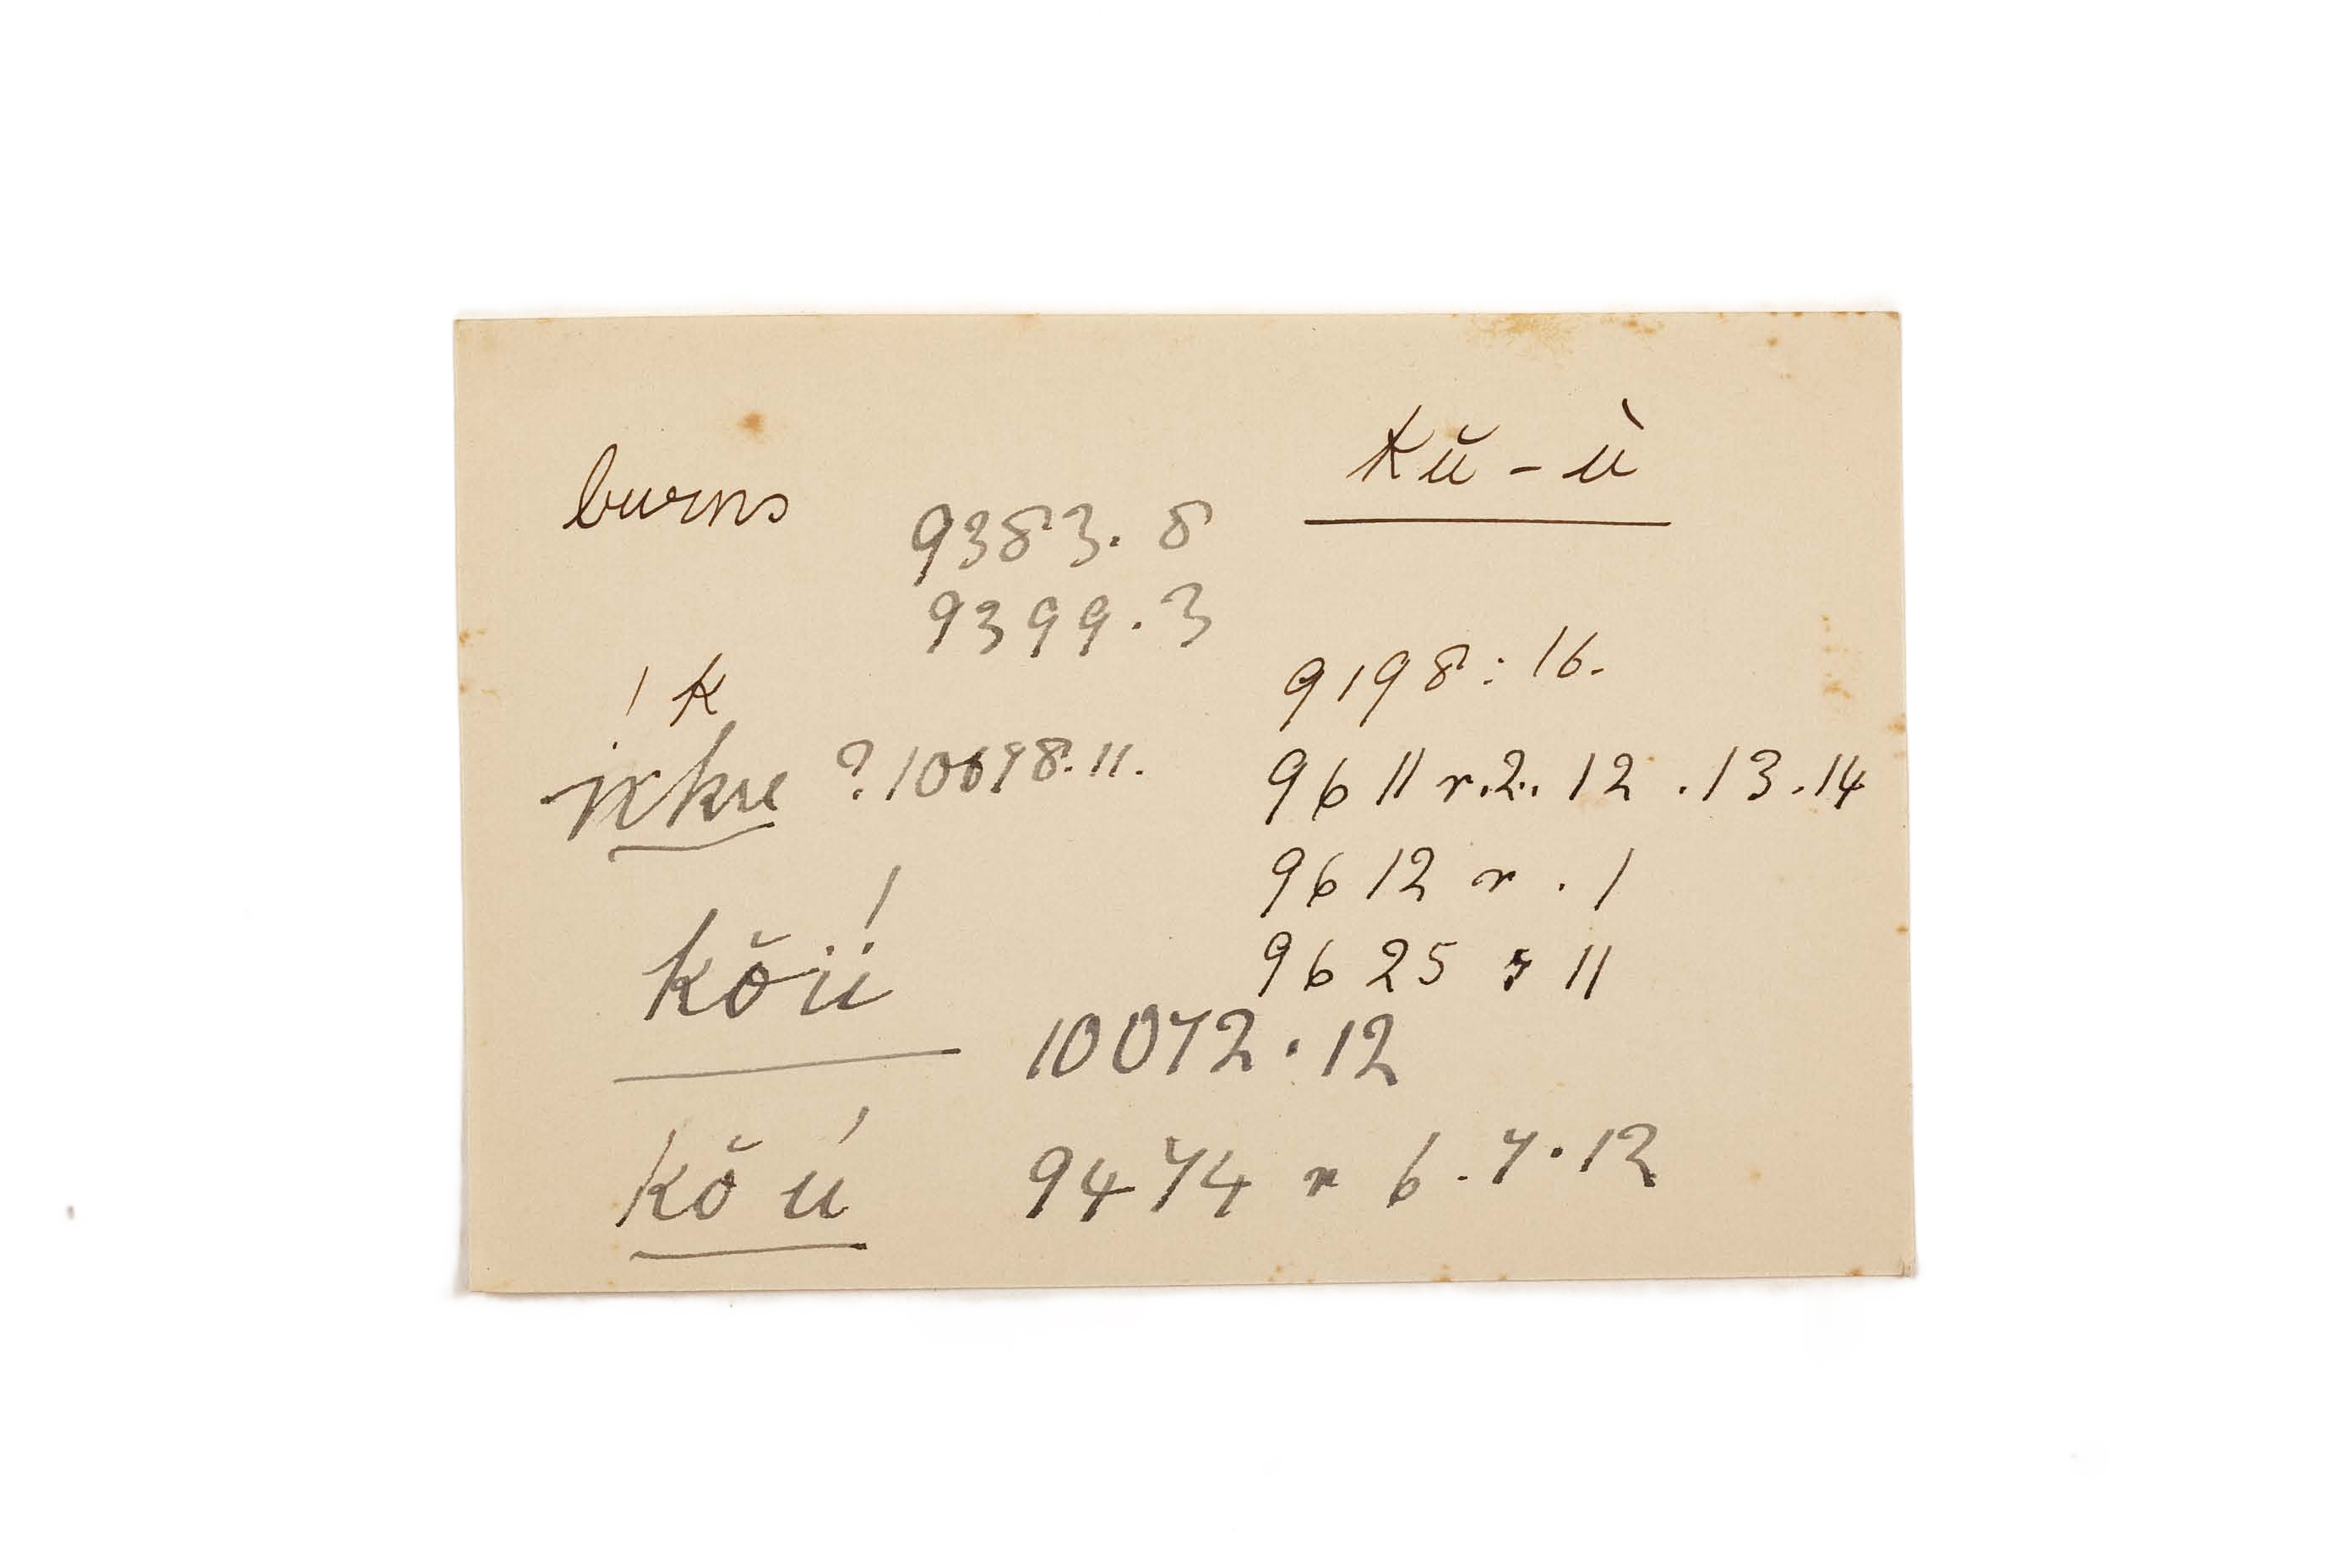 burns kŭ-ù
9383. 8
9399.3
! k 9198: 16.
?10698.11. 9611 r.2. 12 .13.14
9612 r . 1
kŏü! 9625 r 11
10072.12
kŏ ú 9474 r 6.7.12